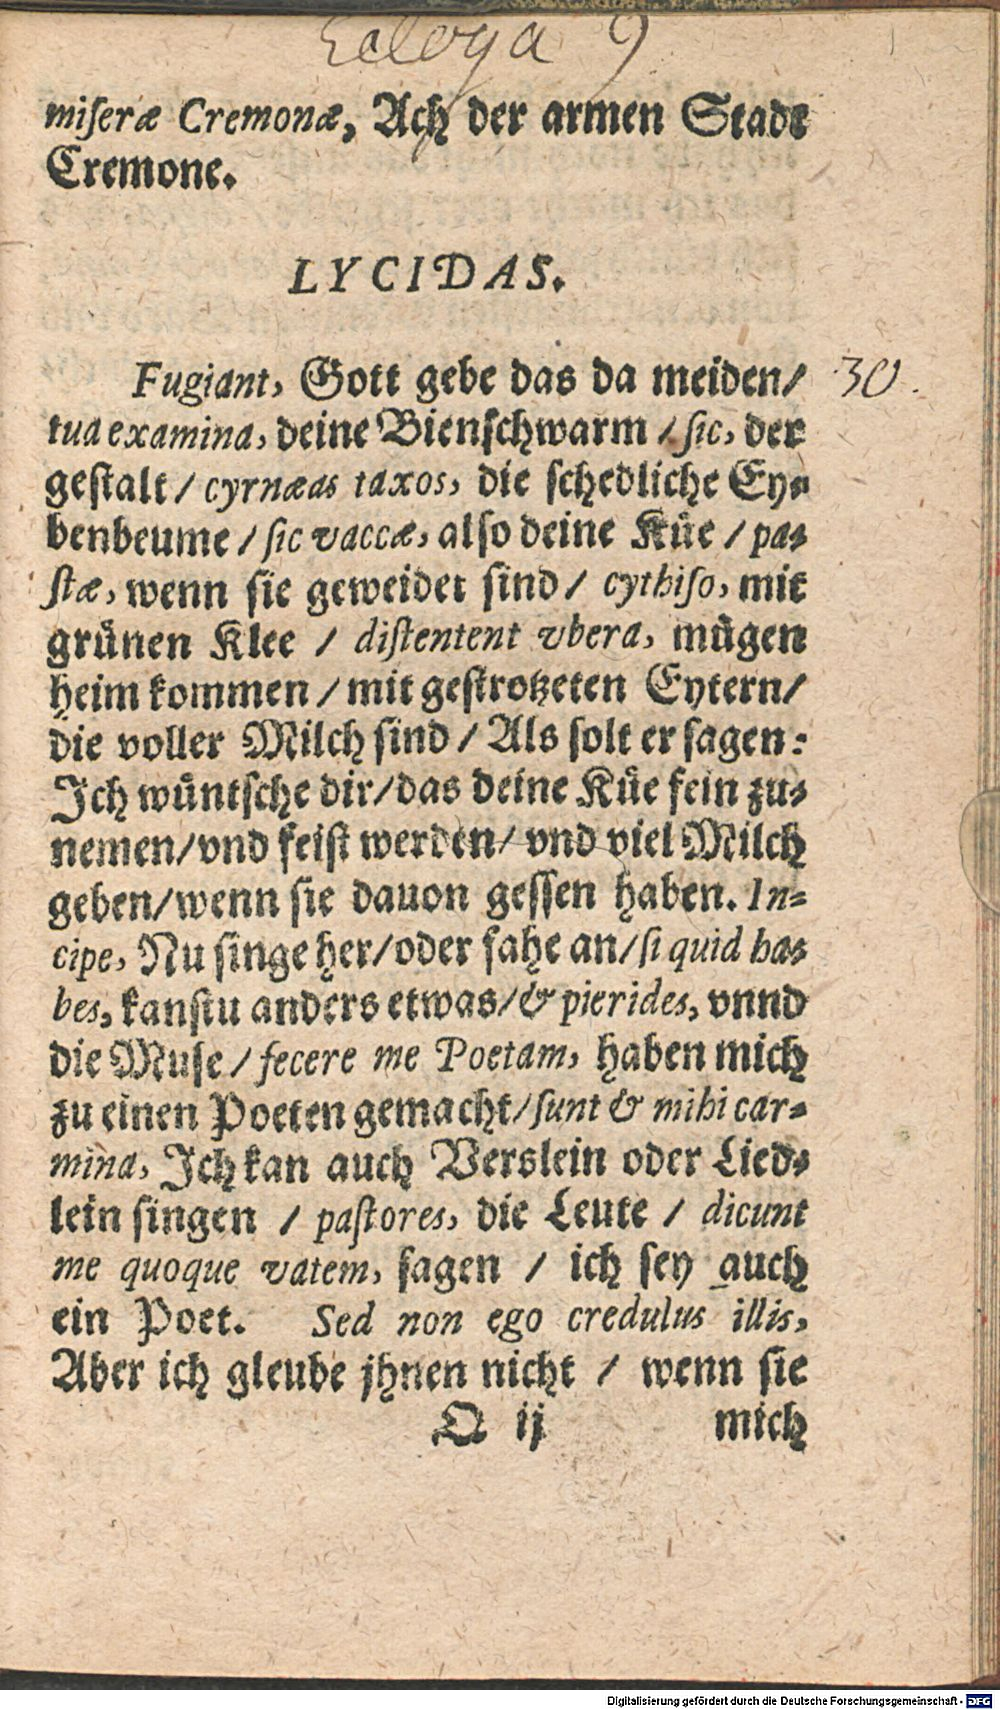 Ecloga 9
miſeræ Cremonæ, Ach der armen Stadt
Cremone.
LYCIDAS.
Fugiant, Gott gebe das da meiden/ 30.
tua examina, deine Bienſchwarm / ſic, der
geſtalt / cyrnæas taxos, die ſchedliche Ey⸗
benbeume / ſic vaccæ, alſo deine Küe / pa⸗
ſtæ, wenn ſie geweidet ſind / cythiſo, mit
grünen Klee / diſtentent vbera, mügen
heim kommen / mit geſtrotzeten Eytern/
die voller Milch ſind / Als ſolt er ſagen:
Ich wüntſche dir/das deine Küe fein zu⸗
nemen/vnd feiſt werden/ vnd viel Milch
geben/wenn ſie dauon geſſen haben. In⸗
cipe, Nu ſinge her/oder fahe an/ſi quid ha⸗
bes, kanſtu anders etwas/& pierides, vnnd
die Muſe / fecere me Poetam, haben mich
zu einen Poeten gemacht/ſunt & mihi car⸗
mina, Ich kan auch Verslein oder Lied⸗
lein ſingen / paſtores, die Leute / dicunt
me quoque vatem, ſagen / ich ſey auch
ein Poet. Sed non ego credulus illis,
Aber ich gleube jhnen nicht / wenn ſie
O ij mich
Digitalisierung gefördert durch die Deutsche Forschungsgemeinschaft - DFG